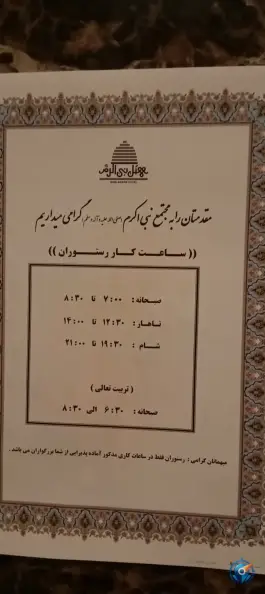 مقدمتان را به مجتمع نبی اکرم (صلی الله علیه و آله وسلم) گرامی میداریم
(( ساعت کار رستوران ))
صبحانه : ۷:۰۰ تا ۸:۳۰
ناهار : ۱۲:۳۰ تا ۱۴:۰۰
شام : ۱۹:۳۰ تا ۲۱:۰۰
( تربیت تعالی )
صبحانه : ۶:۳۰ الی ۸:۳۰
میهمانان گرامی : رستوران فقط در ساعات کاری مذکور آماده پذیرایی از شما بزرگواران می باشد .